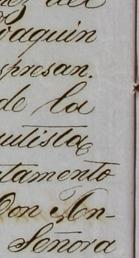 Joaquin
espresan.
de la
utista
tamento
Don An-
Señora